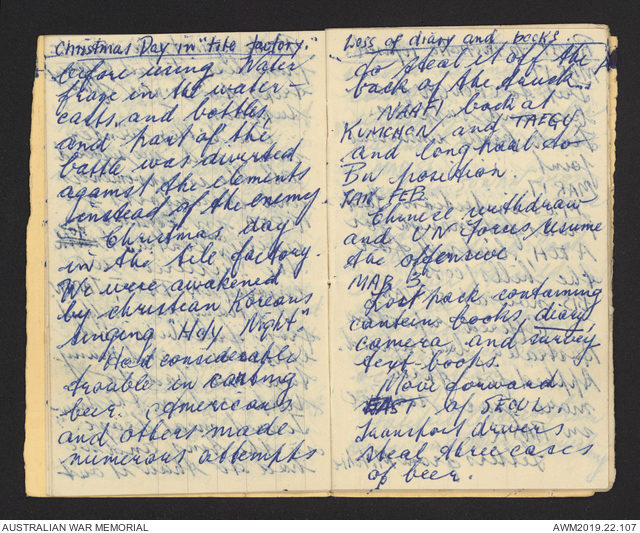 Christmas Day in "tile factory."
before using. Water
froze in the water-
carts, and bottles,
and part of the
battle was diverted
against the elements
instead of the enemy
Christmas day
in the tile factory.
We were awakened
by christian Koreans
singing "Holy Night."
Had considerable
trouble in carting
beer. Americans
and others made
numerous attempts
Loss of diary and books.
to steal it off the
back of the truck.
NAAFI back at
KUMCHON and TAEGU
and long haul to
Bn position.
JAN FEB
Chinese withdraw
and UN forces resume
the offensive.
MAR 3,
Lost pack containing
canteen books, diary,
camera, and survey
text books.
Move forward
EAST of SEOUL
Transport drivers
steal three cases
of beer.
AUSTRALIAN WAR MEMORIAL
AWM2019.22.107